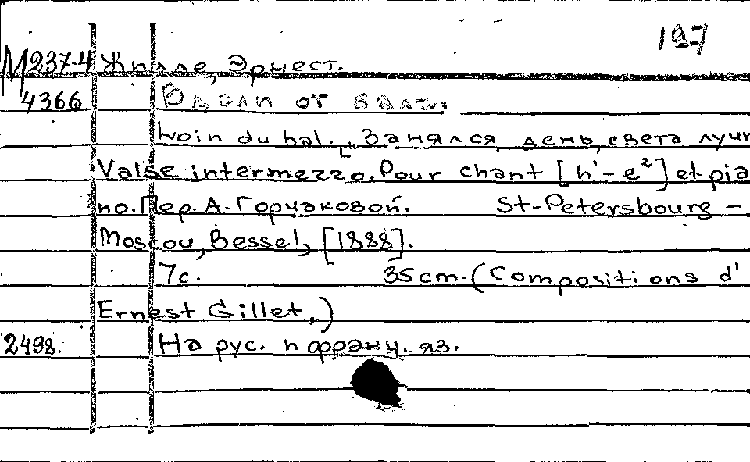 197
М237-4 Жилле, Эрнест.
4366 Вдали от бала.
Loin du bal. Занялся день, света лучи
Valse intermezzo. Pour chant [h'-e²] et pia
no. Пер. А. Горчаковой. St-Petersbourg -
Moscou, Bessel, [1888].
7с. 35cm. (Compositions d'
Ernest Gillet,)
2498. На рус. и франц. яз.